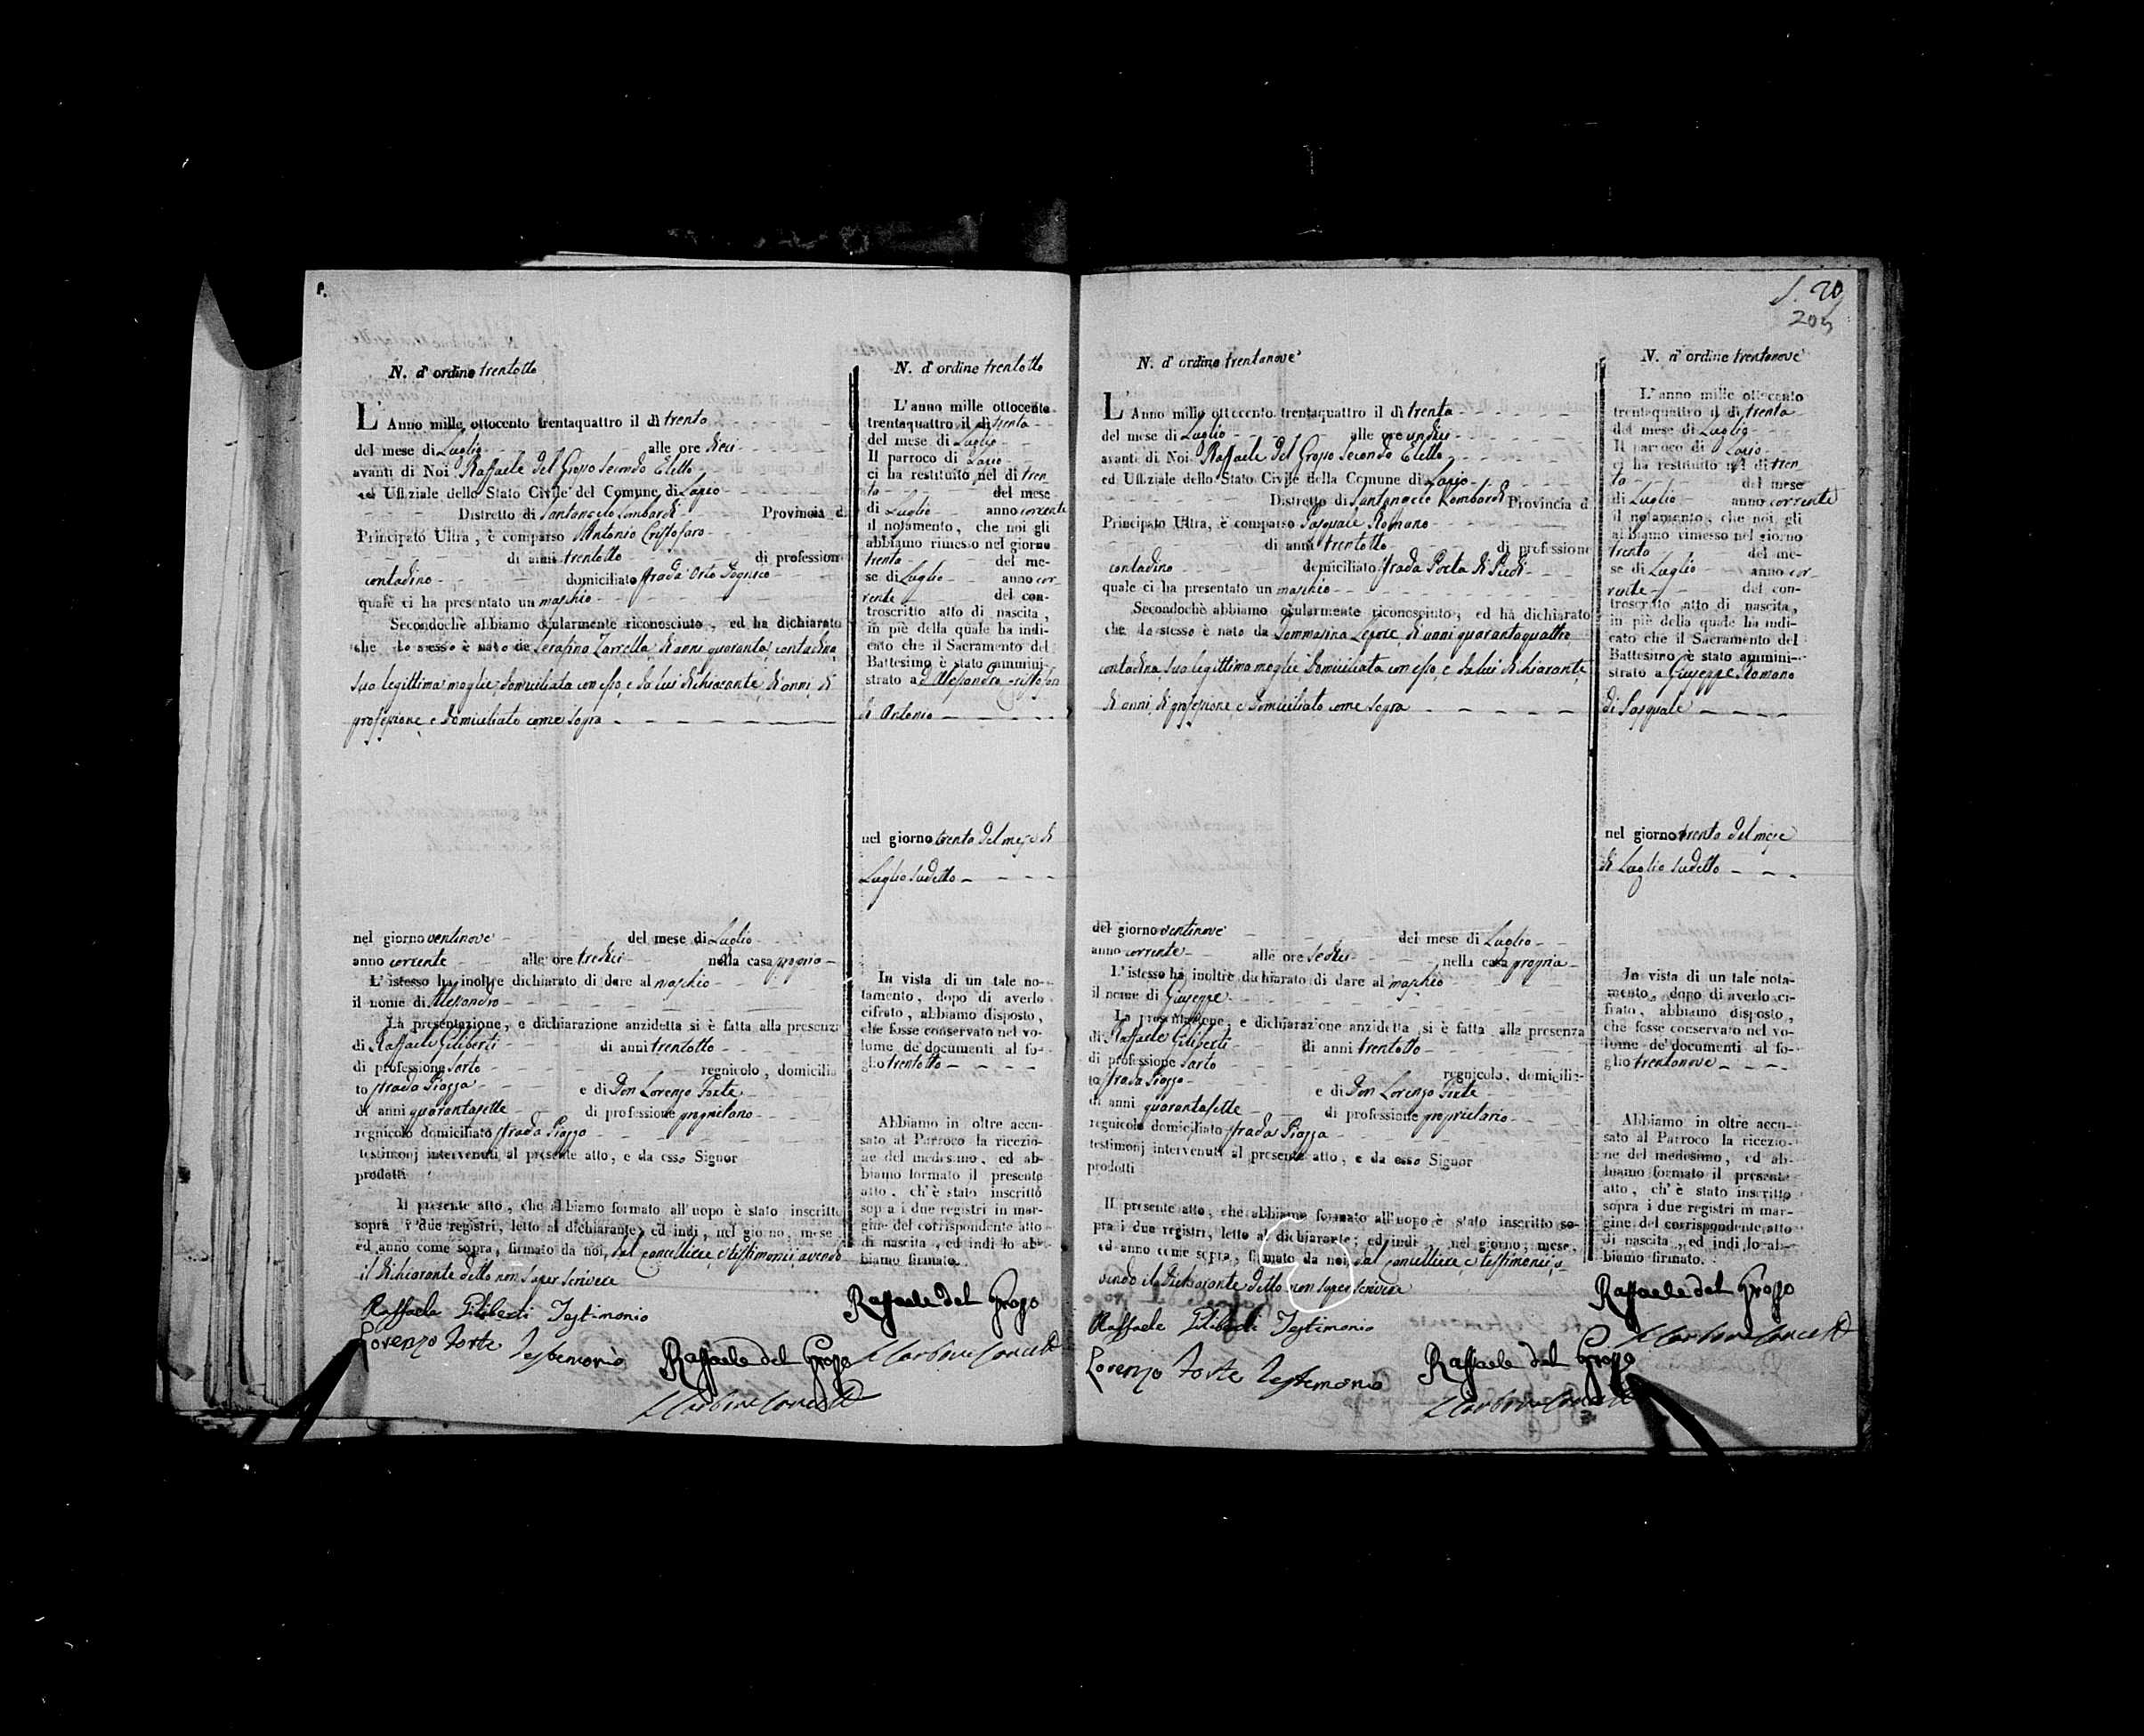 N. d'ordine trentotto
L'Anno mille ottocento trentaquattro il dì trenta
del mese di Luglio alle ore dieci
avanti di Noi Raffaele del Grosso Secondo Eletto
ed Uffiziale dello Stato Civile del Comune di Lapio
Distretto di Santangelo Lombardi Provincia d
Principato Ultra, è comparso Antonio Cristofaro
di anni trentotto di profession
contadino domiciliato strada Orto
quale ci ha presentato un maschio
Secondochè abbiamo ocularmente riconosciuto, ed ha dichiarato
che lo stesso è nato da Serafina Zarrella di anni quaranta contadina
sua legittima moglie domiciliata con esso, e da lui dichiarante di anni, di
professione e domiciliato come sopra
nel giorno ventinove del mese di Luglio
anno corrente alle ore tredici nella casa propria
L'istesso ha inoltre dichiarato di dare al maschio
il nome di Alesandro
La presentazione, e dichiarazione anzidetta si è fatta alla presenza
di Raffaele Giliberti di anni trentotto
di professione sarto regnicolo, domicilia
to strada Piazza e di Don Lorenzo Forte
di anni quarantasette di professione proprietario
regnicolo domiciliato strada Piazza
testimonj intervenuti al presente atto, e da esso Signor
prodotti
Il presente atto, che abbiamo formato all'uopo è stato inscritto
sopra i due registri, letto al dichiarante, ed indi, nel giorno, mese
ed anno come sopra, firmato da noi, dal cancelliere, e testimonii avendo
il dichiarante detto non saper scrivere
Raffaele Giliberti Testimonio
Lorenzo Forte Testimonio
Raffaele del Grosso
N. d'ordine trentotto
L'anno mille ottocento
trentaquattro il dì trenta
del mese di Luglio
Il parroco di Lapio
ci ha restituito nel dì tren
ta del mese
di Luglio anno corrente
il notamento, che noi gli
abbiamo rimesso nel giorno
trenta del me-
se di Luglio anno cor
rente del con-
troscritto atto di nascita,
in piè della quale ha indi-
cato che il Sacramento del
Battesimo è stato ammini-
strato a Alesandro Cristofaro
di Antonio
nel giorno trenta del mese di
Luglio sudetto
In vista di un tale no-
tamento, dopo di averlo
cifrato, abbiamo disposto,
che fosse conservato nel vo-
lume de' documenti al fo-
glio trentotto
Abbiamo in oltre accu-
sato al Parroco la ricezio-
ne del medesimo, ed ab-
biamo formato il presente
atto, ch'è stato inscritto
sopra i due registri in mar-
gine del corrispondente atto
di nascita, ed indi lo ab-
biamo firmato.
Raffaele del Grosso
20
N. d'ordine trentanove
L'Anno mille ottocento trentaquattro il dì trenta
del mese di Luglio alle ore undici
avanti di Noi Raffaele del Grosso Secondo Eletto
ed Uffiziale dello Stato Civile della Comune di Lapio
Distretto di Santangelo Lombardi Provincia d
Principato Ultra, è comparso Pasquale Romano
di anni trentotto di professione
contadino domiciliato strada Porta di Piedi
quale ci ha presentato un maschio
Secondochè abbiamo ocularmente riconosciuto, ed ha dichiarato
che lo stesso è nato da Tommasina Lepore di anni quarantaquattro
contadina, sua legittima moglie domiciliata con esso, e da lui dichiarante
di anni, di professione e domiciliato come sopra
del giorno ventinove del mese di Luglio
anno corrente alle ore sedici nella casa propria
L'istesso ha inoltre dichiarato di dare al maschio
il nome di Giuseppe
La presentazione, e dichiarazione anzidetta si è fatta alla presenza
di Raffaele Giliberti di anni trentotto
di professione sarto regnicolo, domicilia-
to strada Piazza e di Don Lorenzo Forte
di anni quarantasette di professione proprietario
regnicolo domiciliato strada Piazza
testimonj intervenuti al presente atto, e da esso Signor
prodotti
Il presente atto, che abbiamo formato all'uopo è stato inscritto so-
pra i due registri, letto al dichiarante, ed indi, nel giorno, mese,
ed anno come sopra, firmato da noi, dal cancelliere, e testimonii a-
vendo il dichiarante detto non saper scrivere
Raffaele Giliberti Testimonio
Lorenzo Forte Testimonio
Raffaele del Grosso
N. d'ordine trentanove
L'anno mille ottocento
trentaquattro il dì trenta
del mese di Luglio
Il parroco di Lapio
ci ha restituito nel dì tren
ta del mese
di Luglio anno corrente
il notamento, che noi gli
abbiamo rimesso nel giorno
trenta del me-
se di Luglio anno cor-
rente del con-
troscritto atto di nascita,
in piè della quale ha indi-
cato che il Sacramento del
Battesimo è stato ammini-
strato a Giuseppe Romano
di Pasquale
nel giorno trenta del mese
di Luglio sudetto
In vista di un tale nota-
mento, dopo di averlo ci-
frato, abbiamo disposto,
che fosse conservato nel vo-
lume de' documenti al fo-
glio trentanove
Abbiamo in oltre accu-
sato al Parroco la ricezio-
ne del medesimo, ed ab-
biamo formato il presente
atto, ch'è stato inscritto
sopra i due registri in mar-
gine del corrispondente atto
di nascita, ed indi lo ab-
biamo firmato.
Raffaele del Grosso